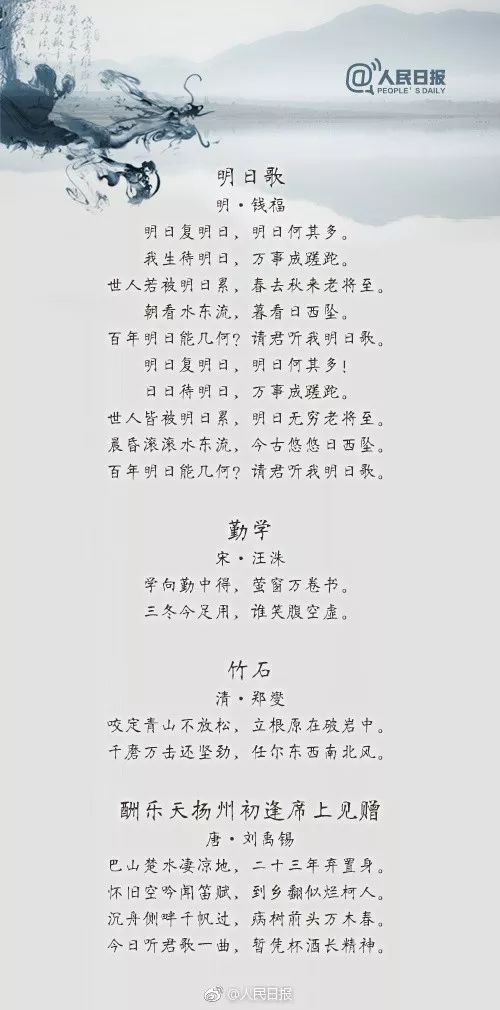 @人民日报
PEOPLE'S DAILY
明日歌
明·钱福
明日复明日，明日何其多。
我生待明日，万事成蹉跎。
世人若被明日累，春去秋来老将至。
朝看水东流，暮看日西坠。
百年明日能几何？请君听我明日歌。
明日复明日，明日何其多！
日日待明日，万事成蹉跎。
世人皆被明日累，明日无穷老将至。
晨昏滚滚水东流，今古悠悠日西坠。
百年明日能几何？请君听我明日歌。
勤学
宋·汪洙
学向勤中得，萤窗万卷书。
三冬今足用，谁笑腹空虚。
竹石
清·郑燮
咬定青山不放松，立根原在破岩中。
千磨万击还坚劲，任尔东西南北风。
酬乐天扬州初逢席上见赠
唐·刘禹锡
巴山楚水凄凉地，二十三年弃置身。
怀旧空吟闻笛赋，到乡翻似烂柯人。
沉舟侧畔千帆过，病树前头万木春。
今日听君歌一曲，暂凭杯酒长精神。
@人民日报